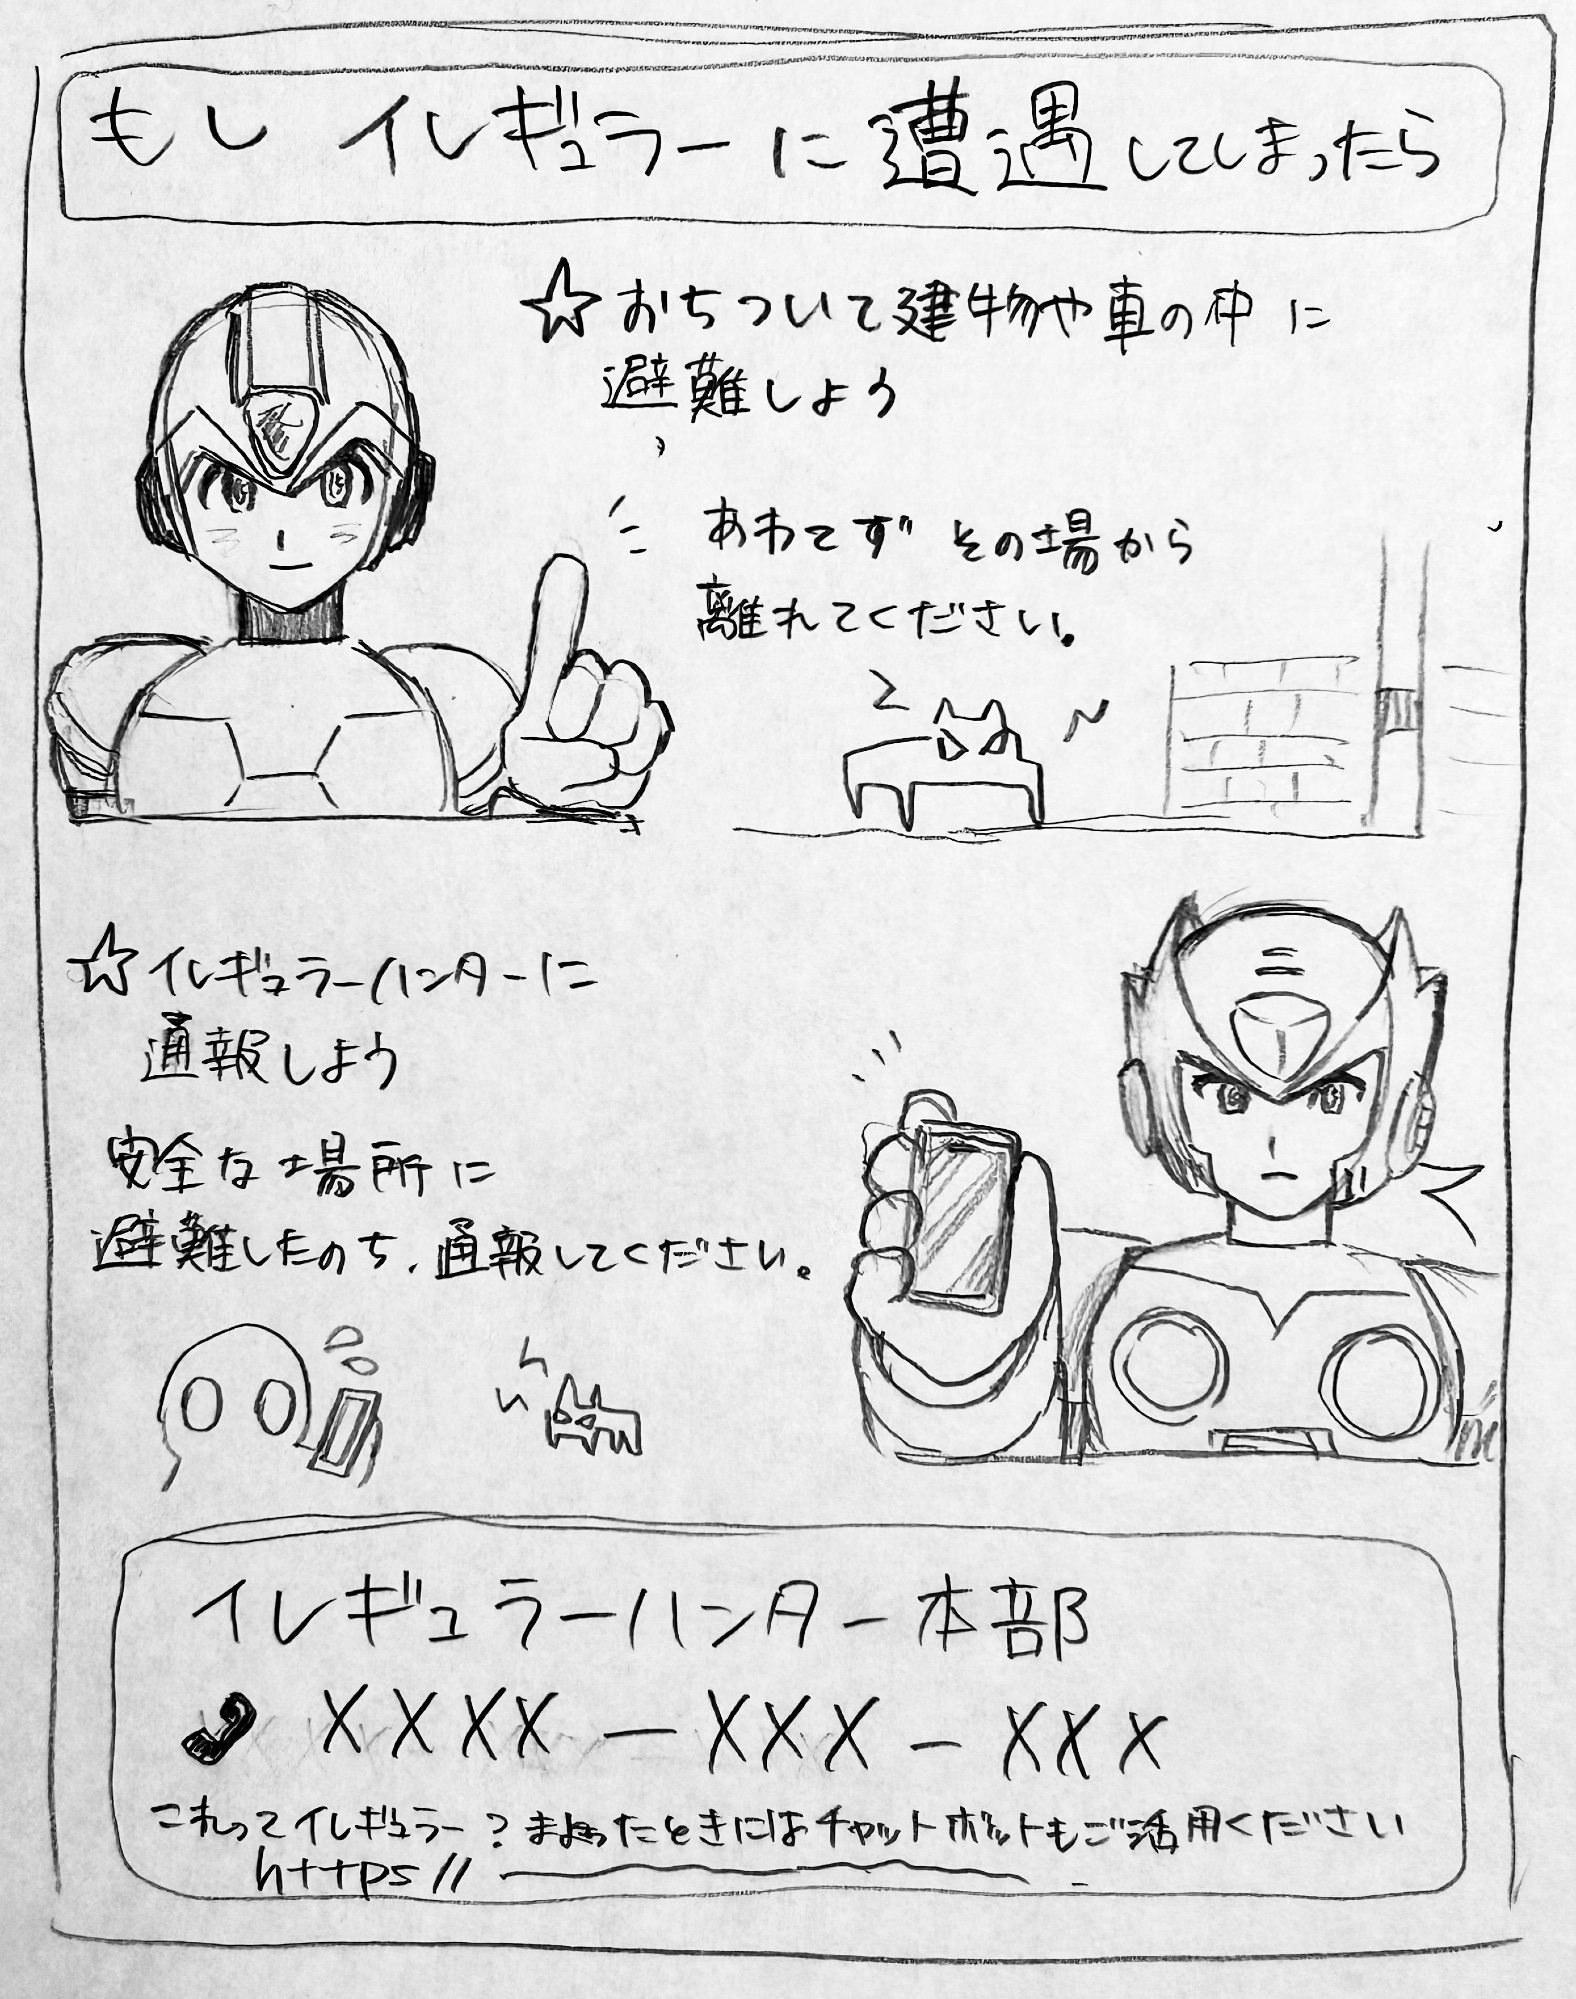 もし イレギュラーに遭遇してしまったら
☆おちついて建物や車の中に
避難しよう
あわてず その場から
離れてください。
☆イレギュラーハンターに
通報しよう
安全な場所に
避難したのち、通報してください。
イレギュラーハンター本部
XXXX－XXX－XXX
これってイレギュラー?まよったときにはチャットボットもご活用ください
https//